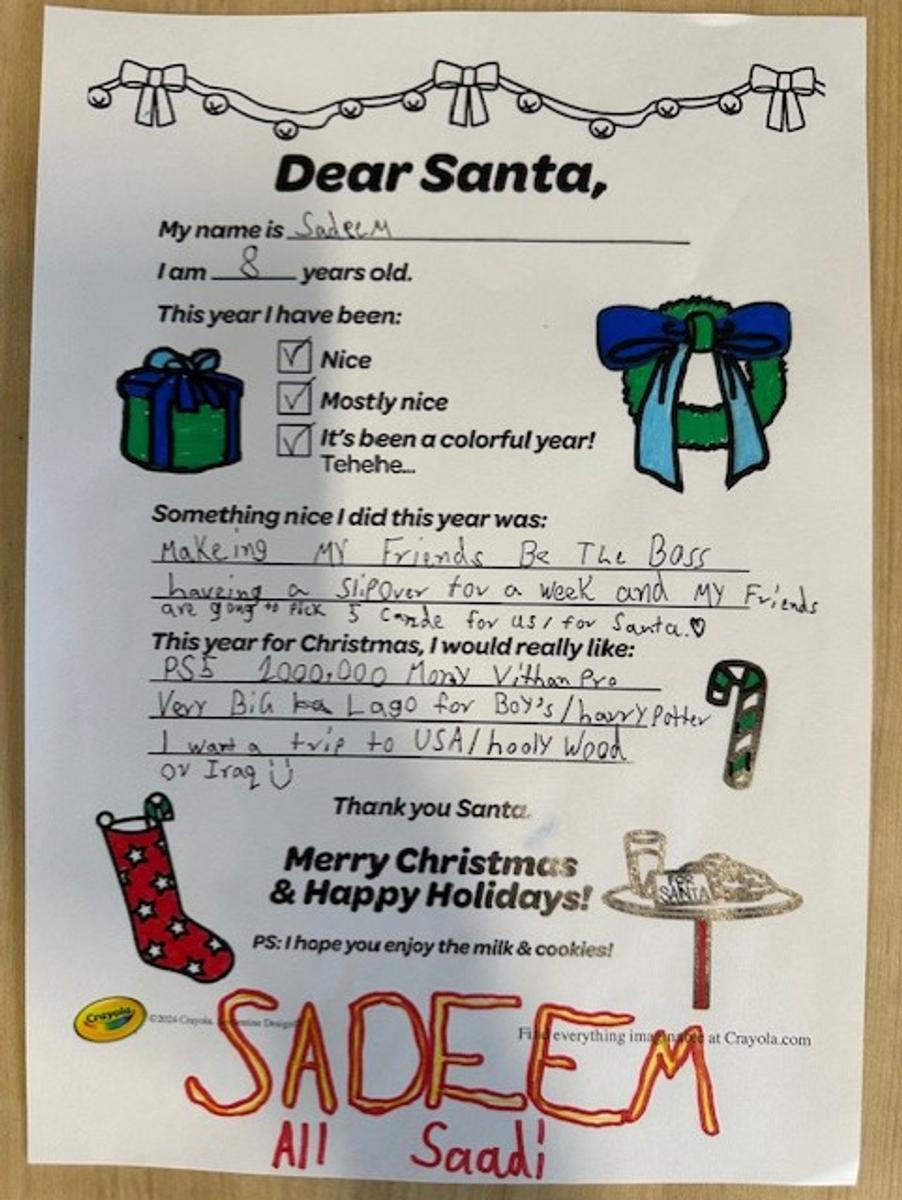 Dear Santa,
My name is Sadeem
I am 8 years old.
This year I have been:
Nice
Mostly nice
It's been a colorful year!
Tehehe...
Something nice I did this year was:
Makeing MY Friends Be The Boss
haveing a SlipOver for a week and MY Friends
are going to Pick 5 Cande for us/for Santa.
This year for Christmas, I would really like:
PS5 1000,000 Mony Vithan Pro
Very BiG Lago for Boy's/harry Potter
I want a trip to USA/hooly Wood
or Iraq
Thank you Santa.
Merry Christmas
& Happy Holidays!
FOR
SANTA
PS: I hope you enjoy the milk & cookies!
Crayola
©2024 Crayola.
Find everything imaginable at Crayola.com
SADEEM
All Saadi